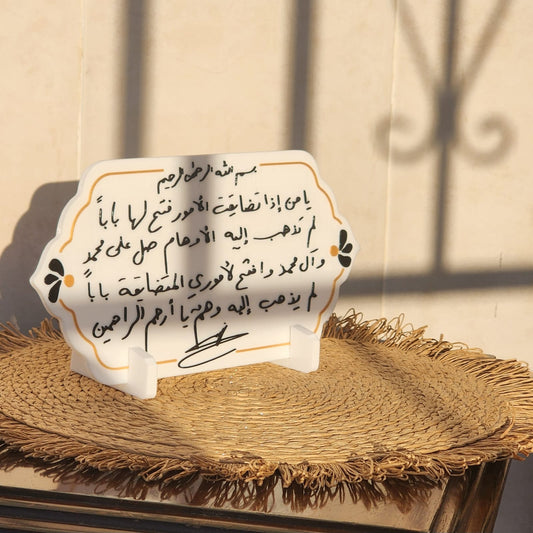 بسم الله الرحمن الرحيم
يا من إذا تضايقت الأمور فتح لها باباً
لم تذهب إليه الأوهام صل على محمد
وآل محمد وافتح لأموري المتضايقة باباً
لم يذهب إليه وهم يا أرحم الراحمين